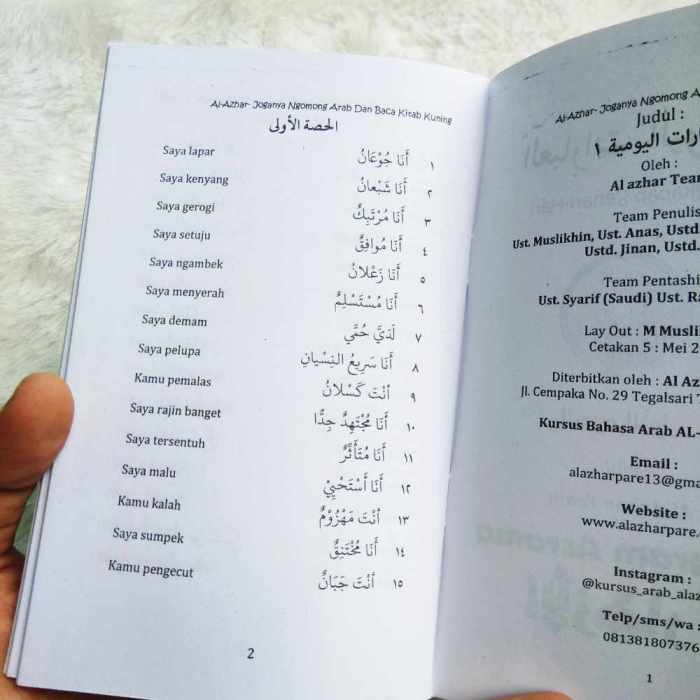 Al-Azhar- Joganya Ngomong Arab Dan Baca Kitab Kuning
الحصة الأولى
Saya lapar أَنَا جُوْعَانُ ١
Saya kenyang أَنَا شَبْعانُ ٢
Saya gerogi أَنَا مُرْتَبِكٌ ٣
Saya setuju أَنَا مُوافِقٌ ٤
Saya ngambek أَنَا زَعْلانُ ٥
Saya menyerah أَنَا مُسْتَسْلِمٌ ٦
Saya demam لَدَيَّ حُمَّي ٧
Saya pelupa أَنَا سَرِيعُ النِسْيانِ ٨
Kamu pemalas أَنْتَ كَسْلانُ ٩
Saya rajin banget أَنَا مُجْتَهِدٌ جِدًّا ١٠
Saya tersentuh أَنَا مُتَأَثِّرٌ ١١
Saya malu أَنَا أَسْتَحْيِيْ ١٢
Kamu kalah أَنْتَ مَهْزُوْمٌ ١٣
Saya sumpek أَنَا مُخْتَنِقٌ ١٤
Kamu pengecut أَنْتَ جَبَانٌ ١٥
2
Al-Azhar- Joganya Ngomong A
Judul :
اليومية ١
Oleh :
Al azhar Tean
Team Penulis
Ust. Muslikhin, Ust. Anas, Ustd.
Ustd. Jinan, Ustd.
Team Pentashi
Ust. Syarif (Saudi) Ust. Ra
Lay Out : M Musli
Cetakan 5 : Mei 2
Diterbitkan oleh : Al Az
Jl. Cempaka No. 29 Tegalsari T
Kursus Bahasa Arab AL-
Email :
alazharpare13@gma
Website :
www.alazharpare.
Instagram :
@kursus_arab_alaz
Telp/sms/wa :
081381807376
1